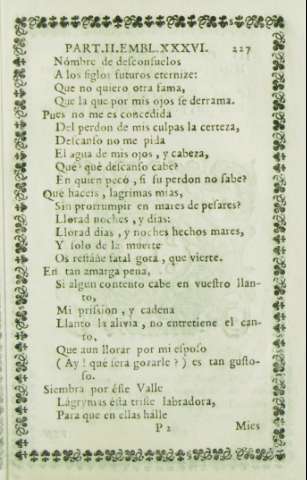 PART.II.EMBL.XXXVI. 227
Nómbre de desconsuelos
A los siglos futuros eternize:
Que no quiero otra fama,
Que la que por mis ojos se derrama.
Pues no me es concedida
Del perdon de mis culpas la certeza,
Descanso no me pida
El agua de mis ojos, y cabeza,
Que què descanso cabe?
En quien pecó, si su perdon no sabe?
Què haceis, lagrimas mias,
Sin prorrumpir en mares de pesares?
Llorad noches, y dias:
Llorad dias, y noches hechos mares,
Y solo de la muerte
Os restañe fatal gota, que vierte.
En tan amarga pena,
Si algun contento cabe en vuestro llan-
to,
Mi prission, y cadena
Llanto la alivia, no entretiene el can-
to,
Que aun llorar por mi esposo
( Ay! què serà gozarle? ) es tan gusto-
so.
Siembra por éste Valle
Lágrymas ésta triste labradora,
Para que en ellas halle
P 2 Mies